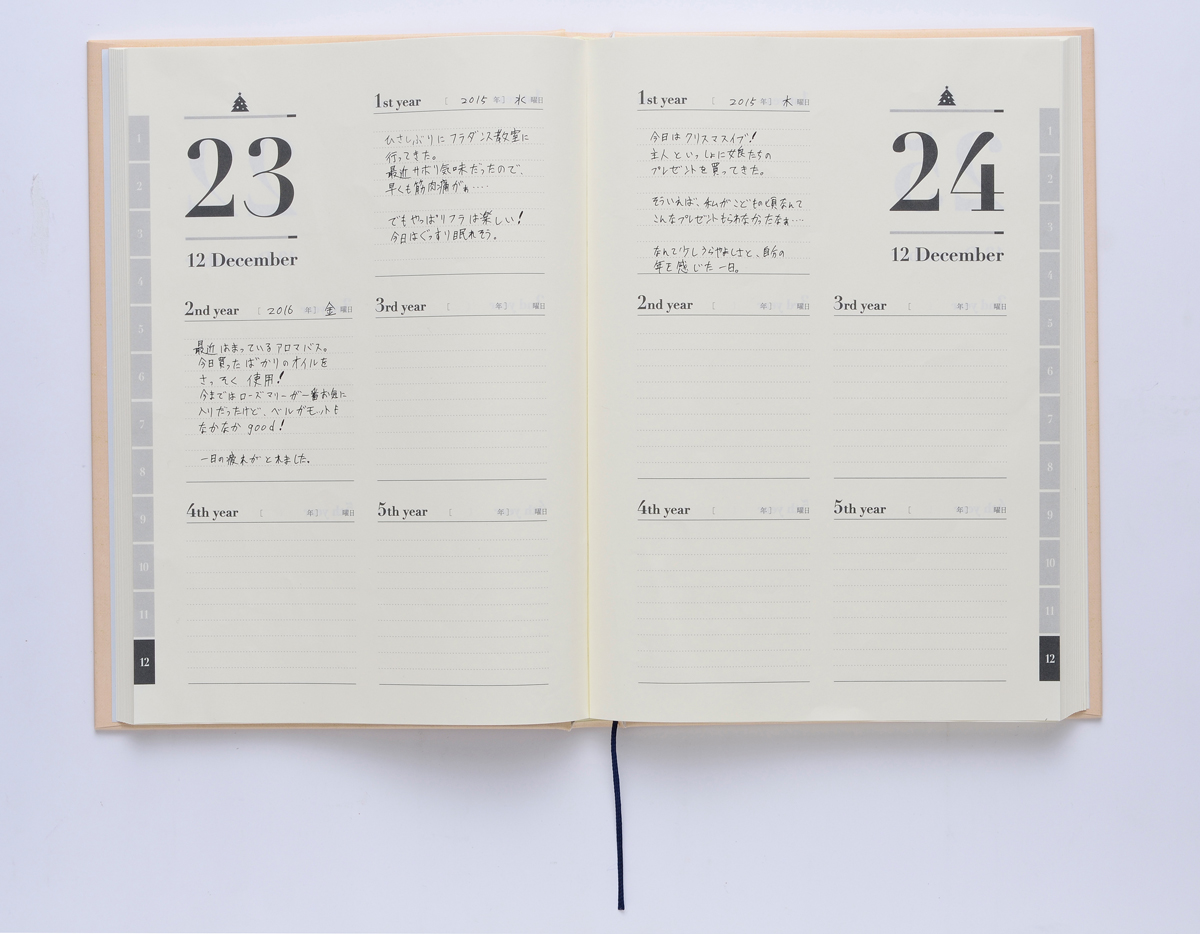 23
12 December
1st year [ 2015 年] 水 曜日
ひさしぶりに フラダンス教室に
行ってきた。
最近 サボリ気味だったので、
早くも筋肉痛がぁ‥‥
でもやっぱりフラは楽しい!
今日はぐっすり眠れそう。
2nd year [ 2016 年] 金 曜日
最近 はまっているアロマバス。
今日買ったばかりのオイルを
さっそく 使用!
今までは ローズマリーが一番お気に
入りだったけど、ベルガモットも
なかなか good!
一日の疲れが とれました。
3rd year [ 年] 曜日
4th year [ 年] 曜日
5th year [ 年] 曜日
1
2
3
4
5
6
7
8
9
10
11
12
1st year [ 2015 年] 木 曜日
今日は クリスマスイブ!
主人 と いっしょに 女良たちの
プレゼントを 買ってきた。
そういえば、私が こどもの頃なんて
こんなプレゼントもらえなかったなぁ‥‥
なんて少しうらやましさと、自分の
年を感じた 一日。
24
12 December
2nd year [ 年] 曜日
3rd year [ 年] 曜日
4th year [ 年] 曜日
5th year [ 年] 曜日
1
2
3
4
5
6
7
8
9
10
11
12